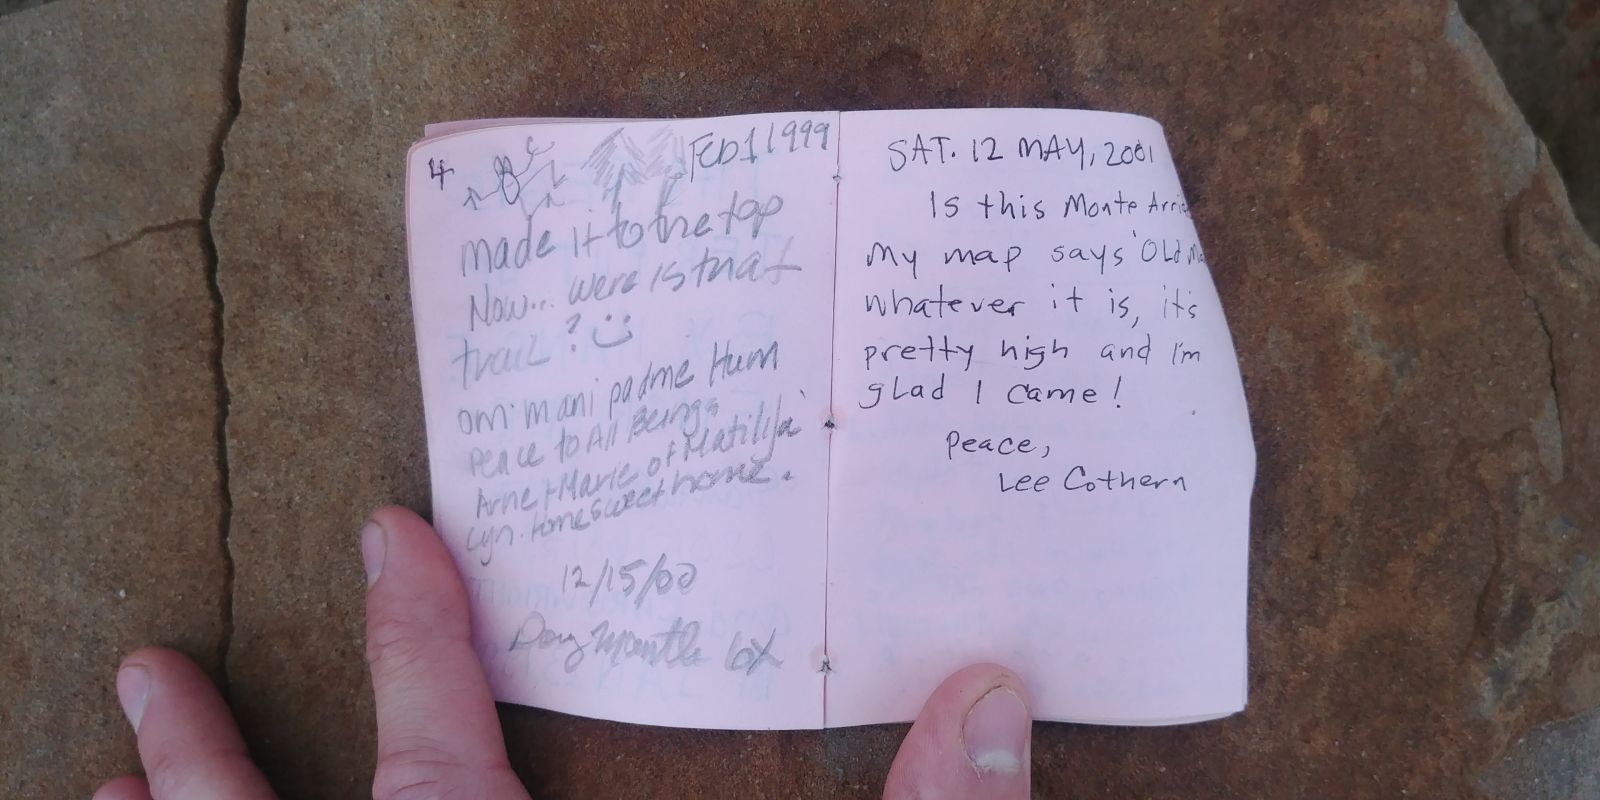 4
Feb 1 1999
made it to the top
Now... were is that
trail ?
om mani padme Hum
peace to All Beings
Arne + Marie of Matilija
cyn. home sweet home.
12/15/00
Doug Mantle 6X
SAT. 12 MAY, 2001
Is this Monte
My map says 'OLd
whatever it is, it's
pretty high and I'm
glad I came!
Peace,
Lee Cothern